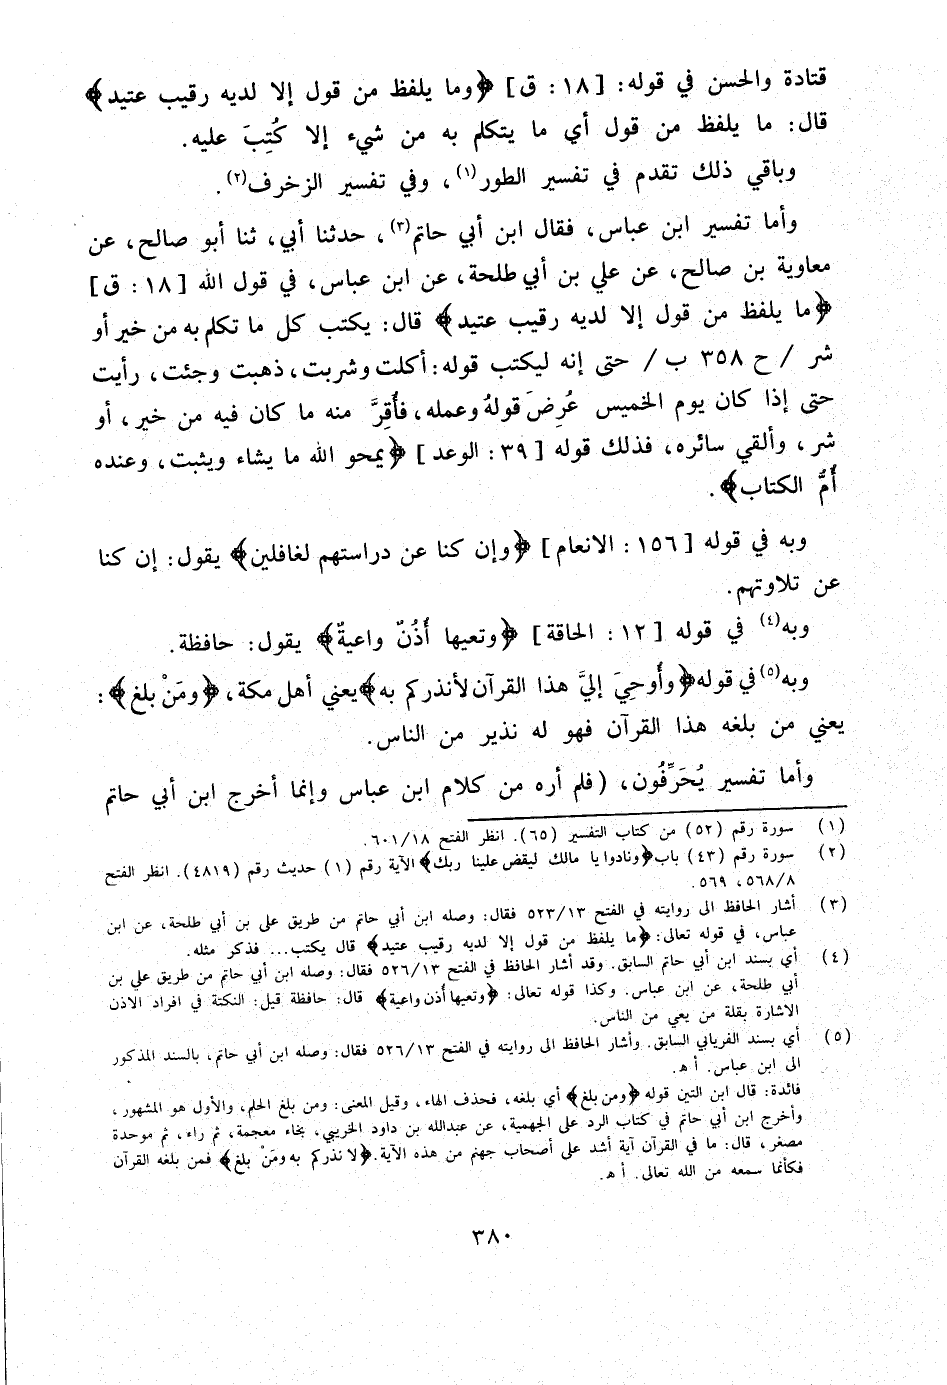 قتادة والحسن في قوله: [١٨ : ق] ﴿وما يلفظ من قول إلا لديه رقيب عتيد﴾
قال: ما يلفظ من قول أي ما يتكلم به من شيء إلا كُتِبَ عليه.
وباقي ذلك تقدم في تفسير الطور(١)، وفي تفسير الزخرف(٢).
وأما تفسير ابن عباس، فقال ابن أبي حاتم(٣)، حدثنا أبي، ثنا أبو صالح، عن
معاوية بن صالح، عن علي بن أبي طلحة، عن ابن عباس، في قول الله [١٨ : ق]
﴿ما يلفظ من قول إلا لديه رقيب عتيد﴾ قال: يكتب كل ما تكلم به من خير أو
شر / ح ٣٥٨ ب / حتى إنه ليكتب قوله: أكلت وشربت، ذهبت وجئت، رأيت
حتى إذا كان يوم الخميس عُرِضَ قولهُ وعمله، فأُقِرَّ منه ما كان فيه من خير، أو
شر، وألقي سائره، فذلك قوله [٣٩ : الوعد] ﴿يمحو الله ما يشاء ويثبت، وعنده
أُمُّ الكتاب﴾.
وبه في قوله [١٥٦ : الانعام] ﴿وإن كنا عن دراستهم لغافلين﴾ يقول: إن كنا
عن تلاوتهم.
وبه(٤) في قوله [١٢ : الحاقة] ﴿وتعيها أُذُنٌ واعيةٌ﴾ يقول: حافظة.
وبه(٥) في قوله ﴿وأُوحِيَ إليَّ هذا القرآن لأنذركم به﴾ يعني أهل مكة، ﴿ومَنْ بلغ﴾:
يعني من بلغه هذا القرآن فهو له نذير من الناس.
وأما تفسير يُحَرِّفُون، (فلم أره من كلام ابن عباس وإنما أخرج ابن أبي حاتم
(١) سورة رقم (٥٢) من كتاب التفسير (٦٥). انظر الفتح ٦٠١/١٨.
(٢) سورة رقم (٤٣) باب ﴿ونادوا يا مالك ليقض علينا ربك﴾ الآية رقم (١) حديث رقم (٤٨١٩). انظر الفتح
٥٦٨/٨، ٥٦٩.
(٣) أشار الحافظ الى روايته في الفتح ٥٢٣/١٣ فقال: وصله ابن أبي حاتم من طريق علي بن أبي طلحة، عن ابن
عباس، في قوله تعالى: ﴿ما يلفظ من قول إلا لديه رقيب عتيد﴾ قال يكتب... فذكر مثله.
(٤) أي بسند ابن أبي حاتم السابق. وقد أشار الحافظ في الفتح ٥٢٦/١٣ فقال: وصله ابن أبي حاتم من طريق علي بن
أبي طلحة، عن ابن عباس. وكذا قوله تعالى: ﴿وتعيها أذن واعية﴾ قال: حافظة قيل: النكتة في افراد الاذن
الاشارة بقلة من يعي من الناس.
(٥) أي بسند الفريابي السابق. وأشار الحافظ الى روايته في الفتح ٥٢٦/١٣ فقال: وصله ابن أبي حاتم، بالسند المذكور
الى ابن عباس. أ هـ.
فائدة: قال ابن التين قوله ﴿ومن بلغ﴾ أي بلغه، فحذف الهاء، وقيل المعنى: ومن بلغ الحلم، والأول هو المشهور،
وأخرج ابن أبي حاتم في كتاب الرد على الجهمية، عن عبدالله بن داود الخريبي، بخاء معجمة، ثم راء، ثم موحدة
مصغر، قال: ما في القرآن آية أشد على أصحاب جهنم من هذه الآية. ﴿لا نذركم به ومَنْ بلغ﴾ فمن بلغه القرآن
فكأنما سمعه من الله تعالى. أ هـ.
٣٨٠